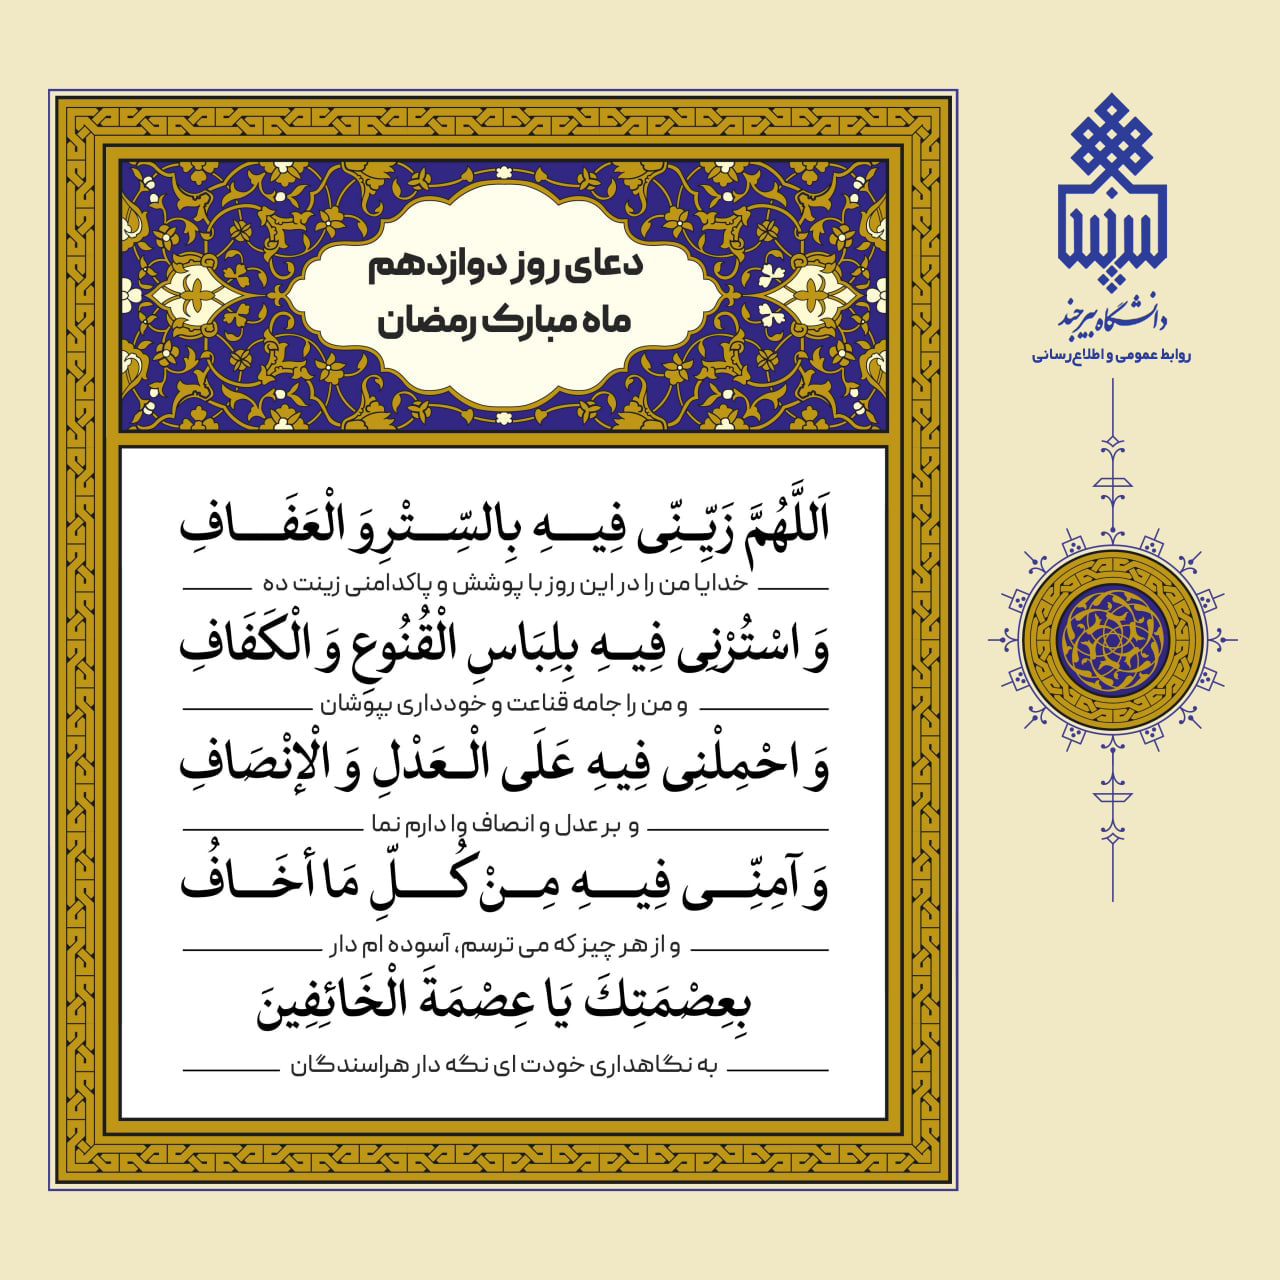 دعای روز دوازدهم
ماه مبارک رمضان
اَللَّهُمَّ زَيِّنِّى فِيهِ بِالسِّتْرِ وَ الْعَفَافِ
خدایا من را در این روز با پوشش و پاکدامنی زینت ده
وَ اسْتُرْنِى فِيهِ بِلِبَاسِ الْقُنُوعِ وَ الْكَفَافِ
و من را جامه قناعت و خودداری بپوشان
وَ احْمِلْنِى فِيهِ عَلَى الْعَدْلِ وَ الْإنْصَافِ
و بر عدل و انصاف وا دارم نما
وَ آمِنِّى فِيهِ مِنْ كُلِّ مَا أخَافُ
و از هر چیز که می ترسم، آسوده ام دار
بِعِصْمَتِكَ يَا عِصْمَةَ الْخَائِفِينَ
به نگاهداری خودت ای نگه دار هراسندگان
دانشگاه بیرجند
روابط عمومی و اطلاع‌رسانی